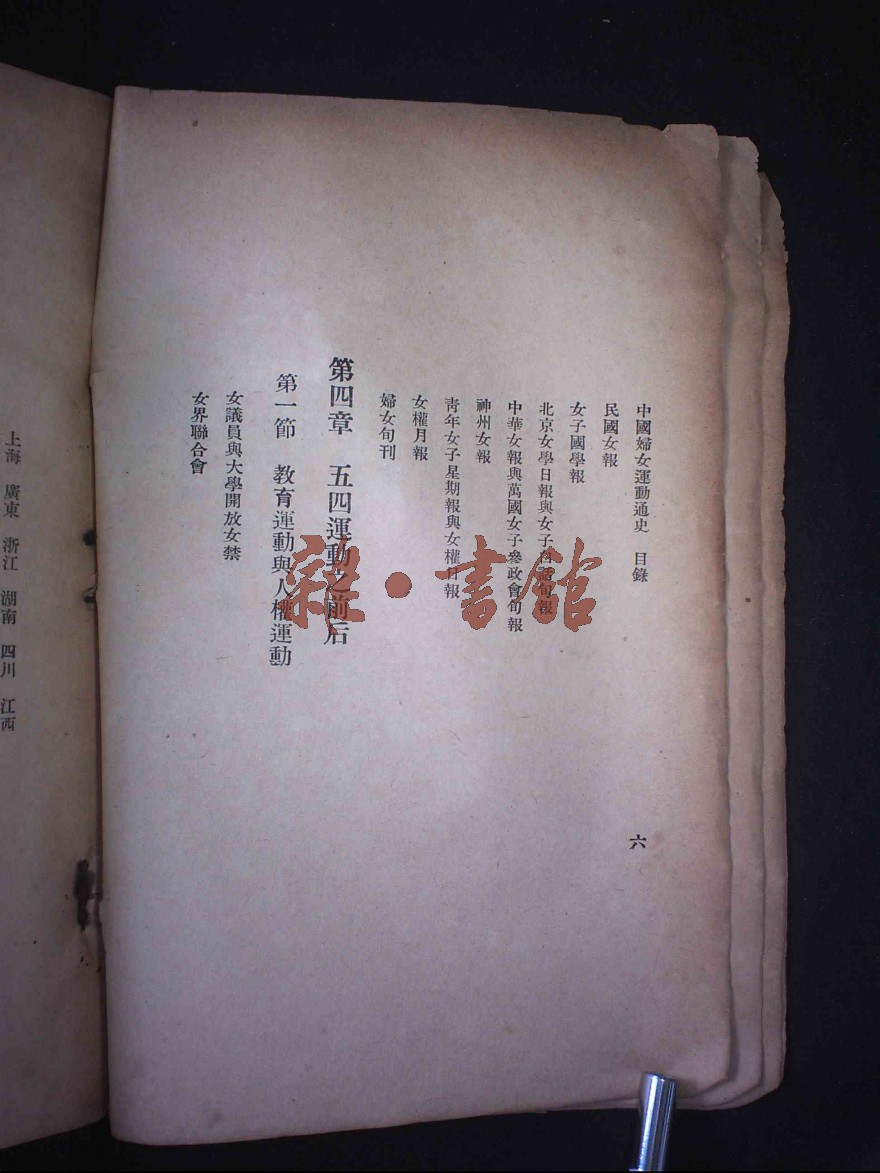 中國婦女運動通史　目錄
六
民國女報
女子國學報
北京女學日報與女子白話旬報
中華女報與萬國女子參政會旬報
神州女報
靑年女子星期報與女權日報
女權月報
婦女旬刊
第四章　五四運動之前后
第一節　敎育運動與人權運動
女議員與大學開放女禁
女界聯合會
上海　廣東　浙江　湖南　四川　江西
雜·書館